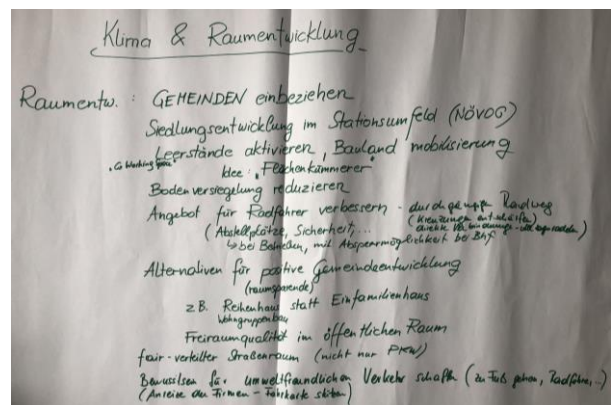 Klima & Raumentwicklung
Raumentw. : GEMEINDEN einbeziehen
Siedlungsentwicklung im Stationsumfeld (NÖVOG)
Leerstände aktivieren, Bauland mobilisierung
"Co Working Space" Idee: "Flächenkümmerer"
Bodenversiegelung reduzieren
Angebot für Radfahrer verbessern - Radweg
(Kreuzungen entschärfen)
(Abstellplätze, Sicherheit, ...
direkte
↳ bei Betrieben, mit Absperrmöglichkeit bei Bhf
Alternativen für positive Gemeindeentwicklung
(raumsparende)
z B. Reihenhaus statt Einfamilienhaus
Wohngruppenbau
Freiraumqualität im öffentlichen Raum
fair-verteilter Straßenraum (nicht nur PKW)
Bewusstsen für umweltfreundlichen Verkehr schaffen (zu Fuß gehen, Radfahren..)
(Anreize der Firmen - Fahrkarte stützen)